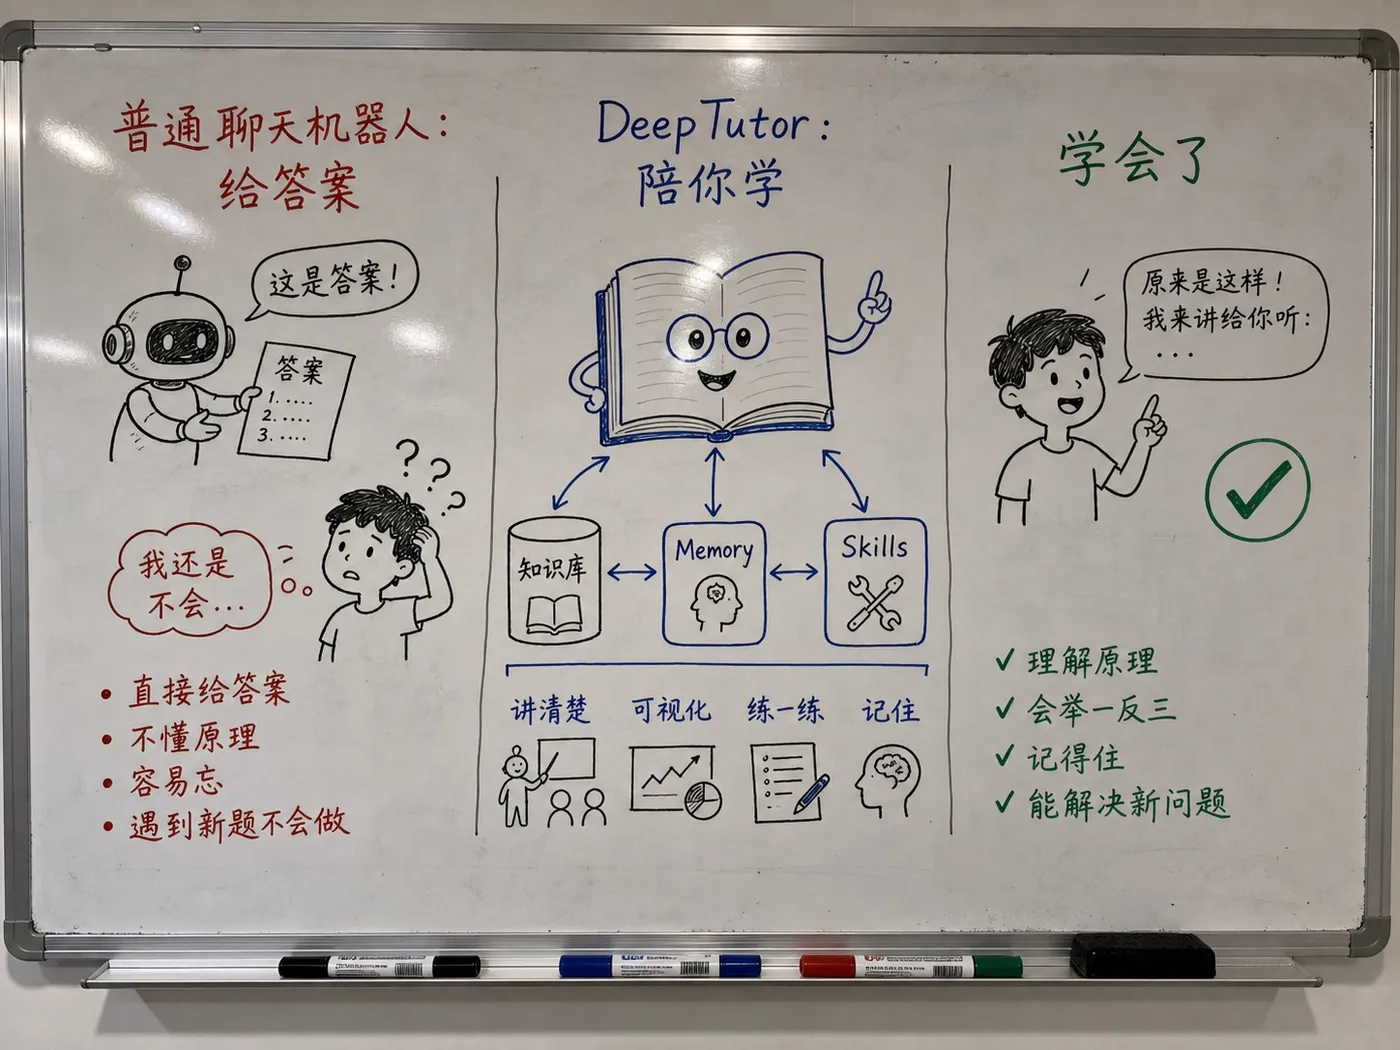 普通聊天机器人：
给答案
这是答案！
答案
1. .....
2. .....
3. ....
? ? ?
我还是
不会...
• 直接给答案
• 不懂原理
• 容易忘
• 遇到新题不会做
DeepTutor：
陪你学
知识库
Memory
Skills
讲清楚
可视化
练一练
记住
学会了
原来是这样！
我来讲给你听：
...
✓ 理解原理
✓ 会举一反三
✓ 记得住
✓ 能解决新问题